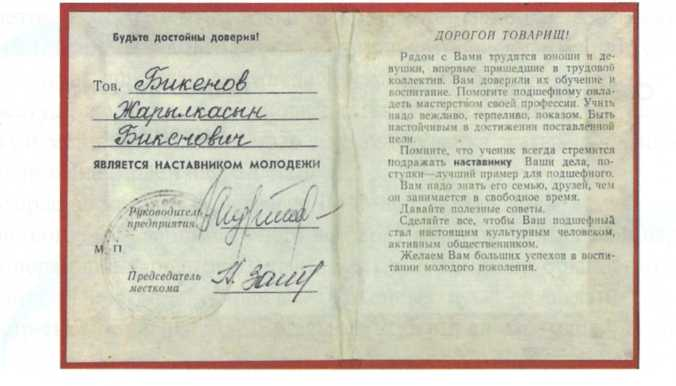 Будьте достойны доверия!
Тов. Бикенов
Жарылкасын
Бикенович
ЯВЛЯЕТСЯ НАСТАВНИКОМ МОЛОДЕЖИ
Руководитель
предприятия
М П
Председатель
месткома
ДОРОГОЙ ТОВАРИЩ!
Рядом с Вами трудятся юноши и де-
вушки, впервые пришедшие в трудовой
коллектив. Вам доверили их обучение и
воспитание. Помогите подшефному овла-
деть мастерством своей профессии. Учить
надо вежливо, терпеливо, показом. Быть
настойчивым в достижении поставленной
цели.
Помните, что ученик всегда стремится
подражать наставнику Ваши дела, по-
ступки—лучший пример для подшефного.
Вам надо знать его семью, друзей, чем
он занимается в свободное время.
Давайте полезные советы.
Сделайте все, чтобы Ваш подшефный
стал настоящим культурным человеком,
активным общественником.
Желаем Вам больших успехов в воспи-
тании молодого поколения.